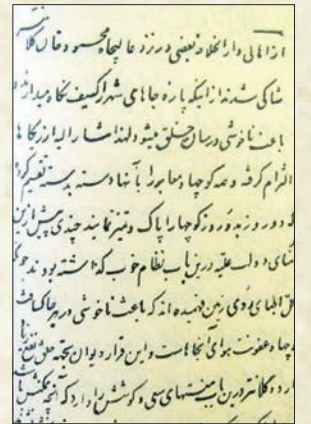 از اهالی دارالخلافه بعضی در نزد عالیجاه محمود خان کلانتر
شاکی شدند از اینکه پاره جاهای شهر را کسیف نگاه میدارند و
باعث ناخوشی در میان خلق میشود لهذا مشارالیه از کدخداها
التزام گرفته و همه کوچها و معابر را بآنها دسته بدسته تقسیم کرده
که دو روز بدو روز کوچها را پاک و تمیز نمایند چندی پیش ازین
امنای دولت علیه درین باب نظام خوب گذاشته بودند چونکه
کل اطبای روی زمین فهمیده اند که باعث ناخوشی در هر جا کثافت
کوچها و عفونت هوای آنجا است و این قرار دیوان بجهة
کلانتر درین باب منتهای سعی و کوشش را دارد که آنچه ممکنش باشد